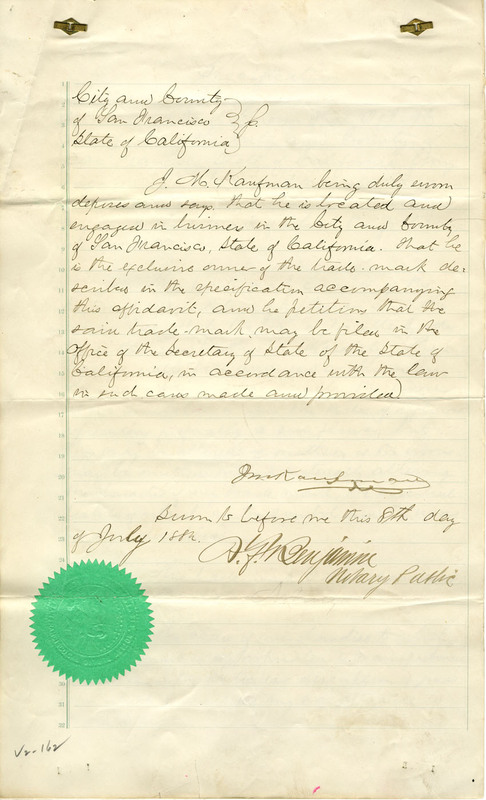 City and County
of San Francisco
State of California
J. M. Kaufman being duly sworn
deposes and says that he is located and
engaged in business in the City and County
of San Francisco, State of California. That he
is the exclusive owner of the trade-mark de-
scribed in the specification accompanying
this affidavit, and he petitions that the
said trade-mark may be filed in the
Office of the Secretary of State of the State of
California, in accordance with the law
in such cases made and provided
J M Kaufman
Sworn to before me this 8th day
of July 188
Benjamin
Notary Public
V2-162